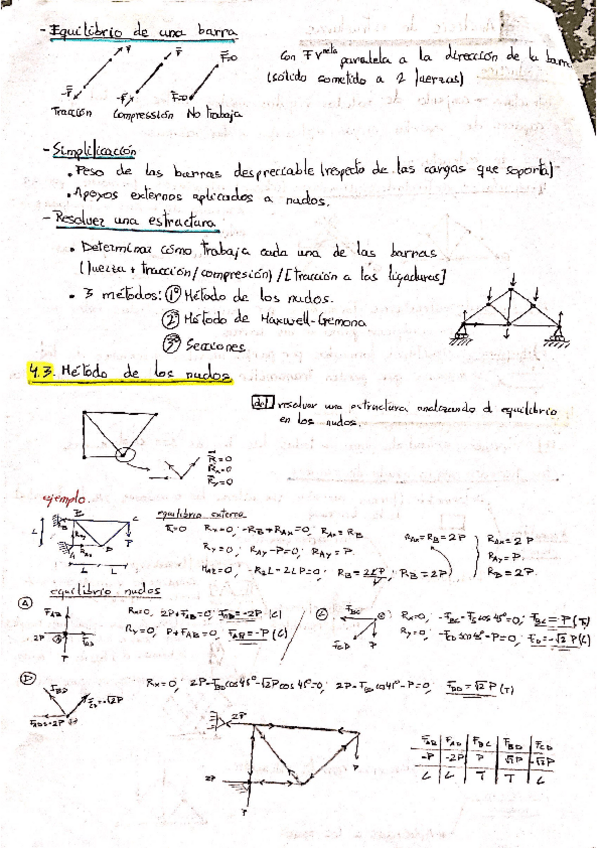 - Equilibrio de una barra
F F F=0
-F -F F=0
Tracción Compresión No trabaja
con F paralela a la dirección de la barra
(sólido sometido a 2 fuerzas)
- Simplificación
• Peso de las barras despreciable (respecto de las cargas que soporta)
• Apoyos externos aplicados a nudos.
- Resolver una estructura
• Determinar cómo trabaja cada una de las barras
(fuerza + tracción/compresión)/[tracción a las ligaduras]
• 3 métodos: 1º Método de los nudos.
2º Método de Maxwell-Cremona
3º Secciones
4.3. Método de los nudos
def resolver una estructura analizando el equilibrio
en los nudos.
R=0
Rx=0
Ry=0
ejemplo.
equilibrio externo
Rx=0; -RB+RAx=0; RAx=RB
Ry=0; RAy-P=0; RAy=P.
RB=2P
RAx=RB=2P
RAx=2P
RAy=P.
RB=2P
equilibrio nudos
A
FAB
2P
P
Rx=0; 2P+FAD=0; FAD=-2P (C)
Ry=0; P+FAB=0; FAB=-P (C)
C
FBC
FCD
P
FBC=P (T)
FCD=-√2P (C)
D
FBD
FCD=-√2P
FAD=-2P
Rx=0; 2P-FBD cos45º-√2P cos45º=0; FBD=√2P (T)
2P
P
2P
P
FAB FAD FBC FBD FCD
-P -2P P √2P -√2P
C C T T C